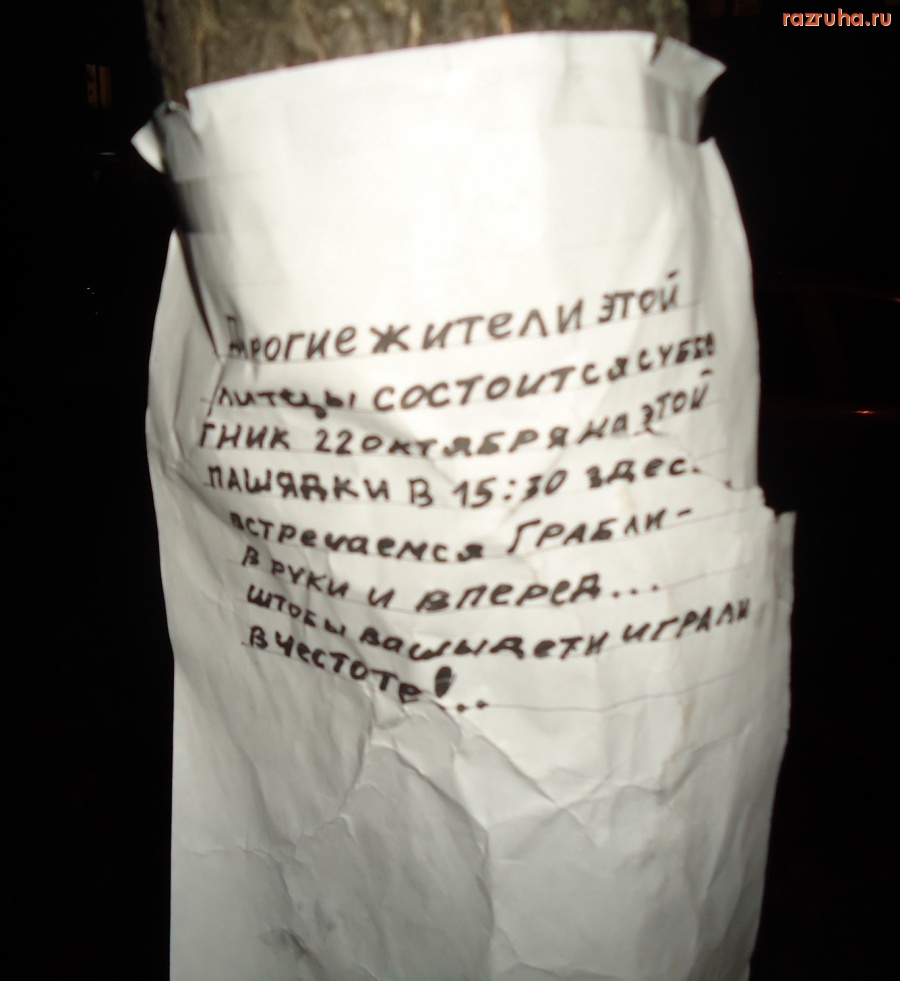 razruha.ru
Дарогие жители этой
улитцы состоится суббо
тник 22 октября на этой
пашядки в 15:30 здес.
встречаемся грабли-
в руки и вперед...
штобы вашы дети играли
в честоте!...